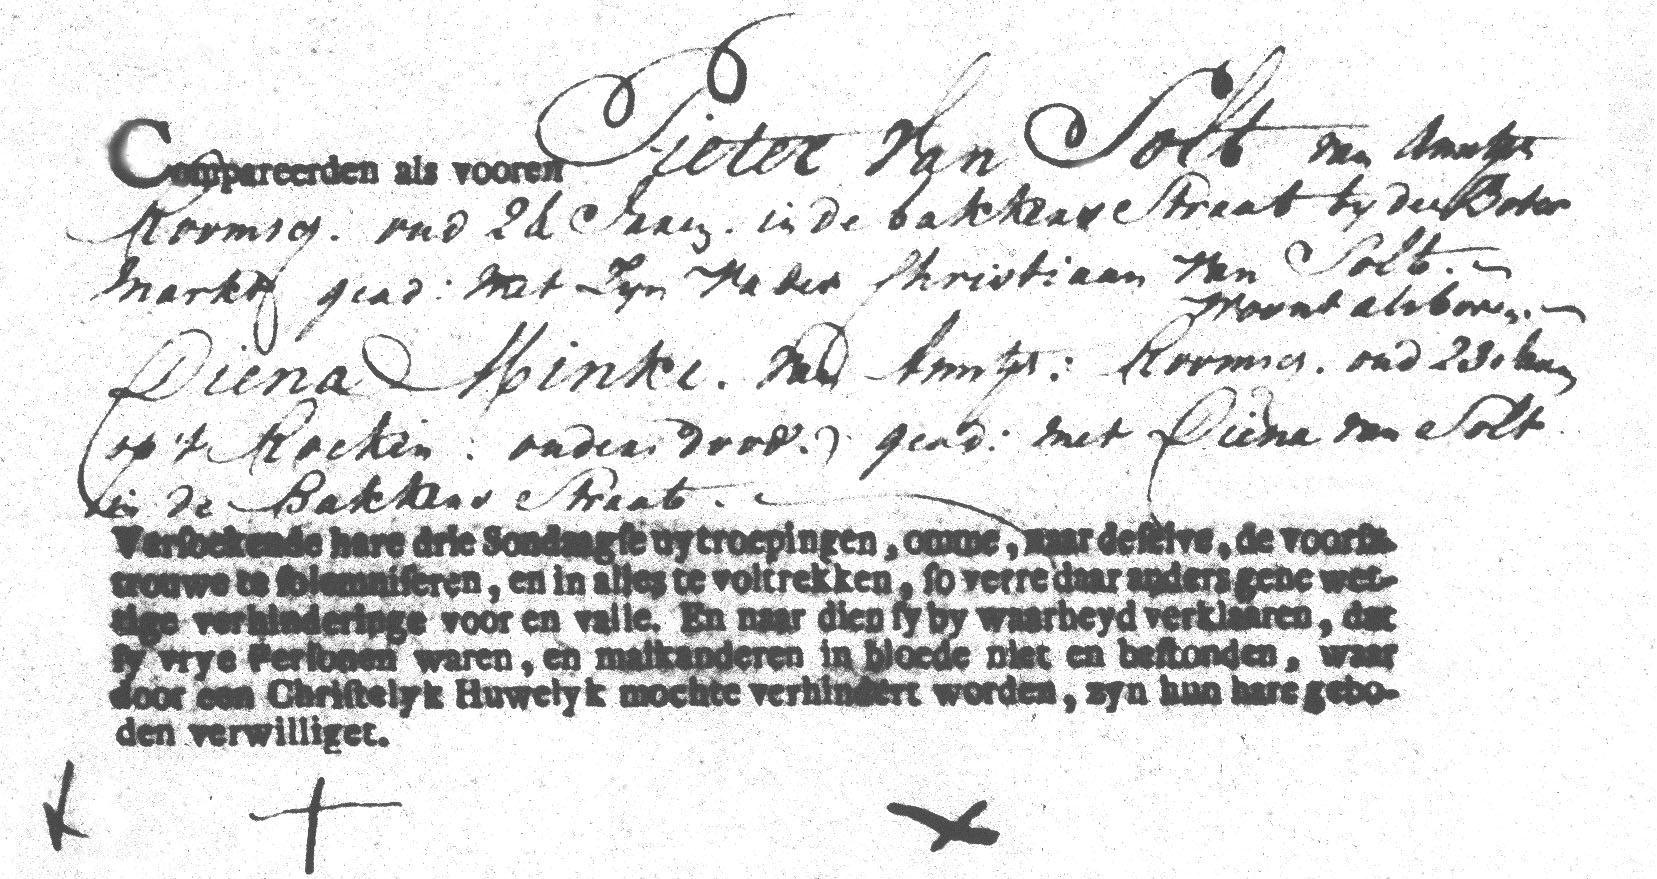 Compareerden als vooren Pieter Van Solt van Amsterd
Roomsg. oud 26 Jaar. in de bakkers Straat by de Boter
Markt gead: met Zyn Vader Christiaan Van Solt.
Woont als boven.
Diena Minke. Van Amst: Roomsg. oud 23 Jaar
op 't Rockin: ouders dood. gead: met Diena van Solt
in de Bakkers Straat.
Verſoekende hare drie Sondaagſe uytroepingen, omme, naar deſelve, de voorſz.
trouwe te ſolemniſeren, en in alles te voltrekken, ſo verre daar anders gene wet-
tige verhinderinge voor en valle. En naar dien ſy by waarheyd verklaaren, dat
ſy vrye Perſonen waren, en malkanderen in bloede niet en beſtonden, waar
door een Chriſtelyk Huwelyk mochte verhindert worden, zyn hun hare gebo-
den verwilliget.